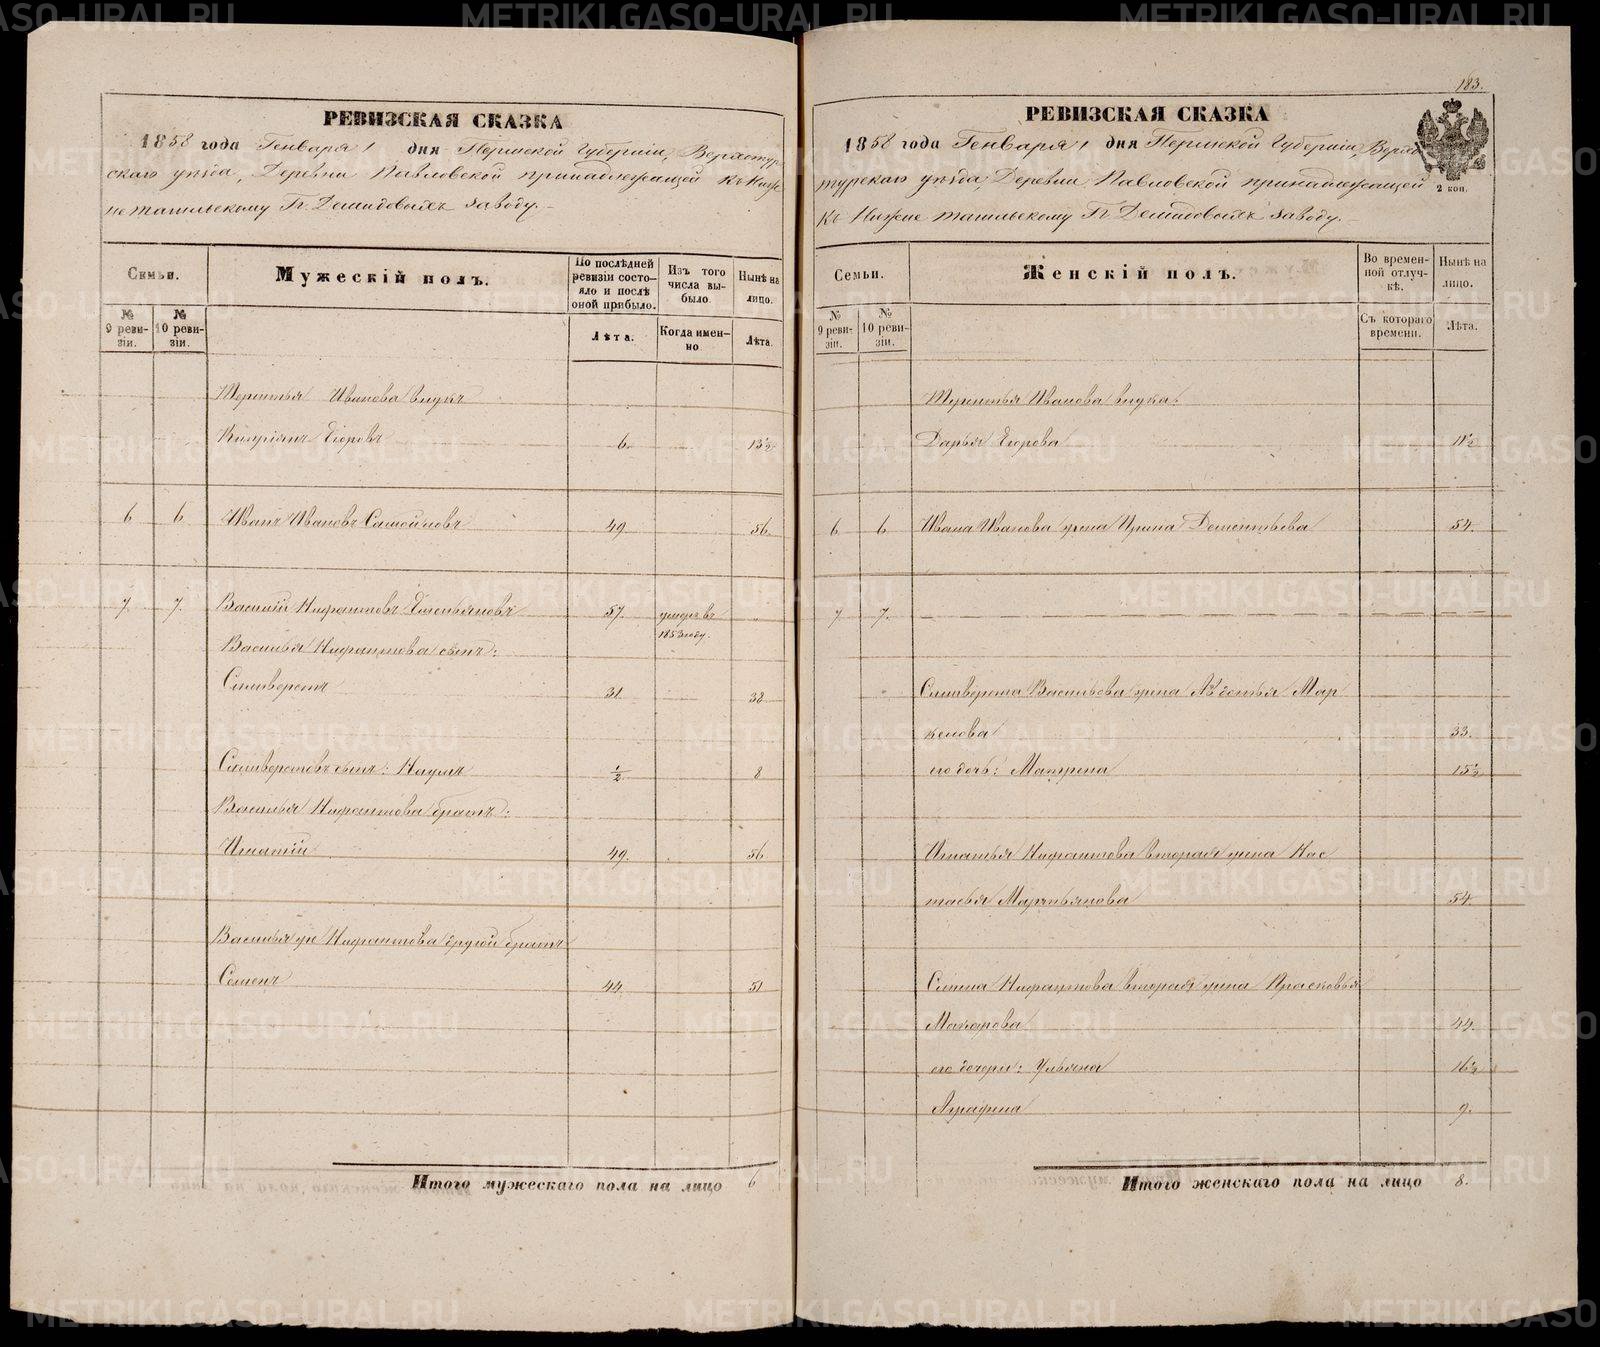 РЕВИЗСКАЯ СКАЗКА
1858 года Генваря 1 дня Пермской Губернии, Верхотур
скаго уѣзда, Деревни Павловской принадлежащей къ Ниж
нетагильскому Гг. Демидовыхъ заводу.
Семьи.
Мужескій полъ.
По послѣдней ревизіи состояло и послѣ оной прибыло.
Изъ того числа выбыло.
Нынѣ на лицо.
№ 9 ревизіи.
№ 10 ревизіи.
Лѣта.
Когда именно
Лѣта.
Терентья Иванова внукъ
Кипріянъ Егоровъ 6. 13½
6 6. Иванъ Ивановъ Самойловъ 49. 56.
7. 7. Василій Нифантовъ Емельяновъ 57. умеръ въ
1853 году.
Василья Нифантова сынъ:
Сильверстъ 31. 38
Сильверстовъ сынъ: Наумъ ½ 8
Василья Нифантова братъ:
Игнатій 49. 56.
Василья же Нифантова другой братъ
Семенъ 44. 51
Итого мужескаго пола на лицо 6
183.
РЕВИЗСКАЯ СКАЗКА
1858 года Генваря 1 дня Пермской Губернии, Верхо
турскаго уѣзда, Деревни Павловской принадлежащей
къ Нижнетагильскому Гг. Демидовыхъ заводу.
2 коп.
Семьи.
Женскій полъ.
Во временной отлучкѣ.
Нынѣ на лицо.
№ 9 ревизіи.
№ 10 ревизіи.
Съ котораго времени.
Лѣта.
Терентья Иванова внука:
Дарья Егорова 11½
6 6. Ивана Иванова жена Ирина Дементьева 54.
7 7.
Сильверста Васильева жена Авдотья Мар
келова 33.
его дочь: Матрена 15½
Игнатья Нифантова вторая жена Нас
тасья Мартьянова 54.
Семена Нифантова вторая жена Прасковья
Макарова 44.
его дочери: Ульяна 16½
Аграфена 9.
Итого женскаго пола на лицо 8.
METRIKI.GASO-URAL.RU